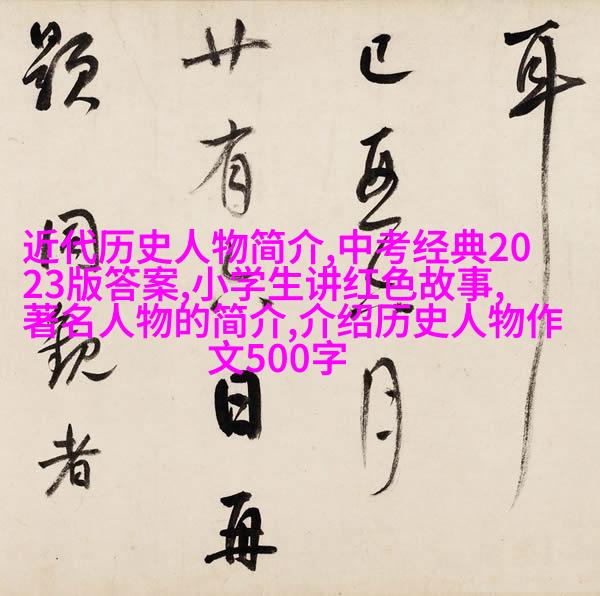 耳
月
廿有日再
題同觀者
近代历史人物简介,中考经典20
23版答案,小学生讲红色故事,
著名人物的简介,介绍历史人物作
文500字